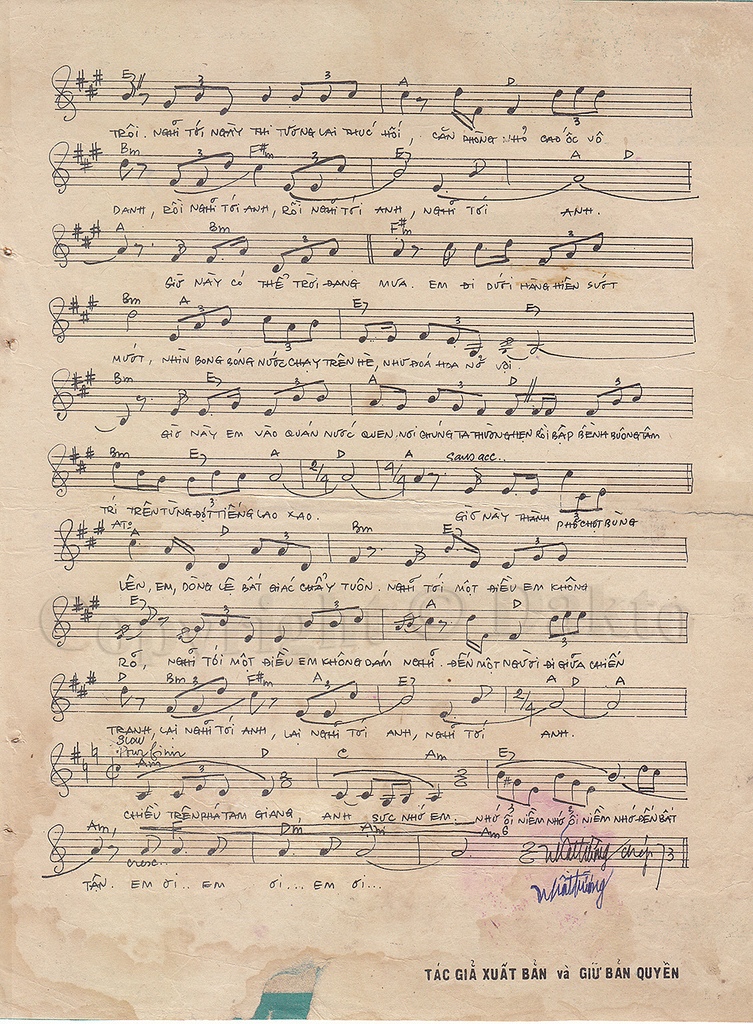 E7 3 3 A D 3
TRÔI. NGHĨ TỚI NGÀY THI TƯƠNG LAI THÚC HỐI, CĂN PHÒNG NHỎ CAO ỐC VÔ
Bm 3 F#m 3 E7 A D
DANH, RỒI NGHĨ TỚI ANH, RỒI NGHĨ TỚI ANH, NGHĨ TỚI ANH.
A Bm 3 F#m 3
GIỜ NÀY CÓ THỂ TRỜI ĐANG MƯA. EM ĐI DƯỚI HÀNG HIÊN SƯỚT
Bm A 3 3 E7 3 E7
MƯỚT, NHÌN BONG BÓNG NƯỚC CHẠY TRÊN HÈ, NHƯ ĐOÁ HOA NỞ VỘI.
Bm E7 3 A D 3
GIỜ NÀY EM VÀO QUÁN NƯỚC QUEN, NƠI CHÚNG TA THƯỜNG HẸN RỒI BẬP BỀNH BUÔNG TÂM
Bm E7 3 A 2/4 D 4/4 A sans acc. 3
TRÍ TRÊN TỪNG ĐỢT TIẾNG LAO XAO. GIỜ NÀY THÀNH PHỐ CHỢT BÙNG
ATº A D 3 Bm E7 3
LÊN, EM, DÒNG LỆ BẤT GIÁC CHẢY TUÔN. NGHĨ TỚI MỘT ĐIỀU EM KHÔNG
E7 3 3 A D 3
RÕ, NGHĨ TỚI MỘT ĐIỀU EM KHÔNG DÁM NGHĨ. ĐẾN MỘT NGƯỜI ĐI GIỮA CHIẾN
D Bm 3 F#m A 3 E7 2/4 A D A
TRANH, LẠI NGHĨ TỚI ANH, LẠI NGHĨ TỚI ANH, NGHĨ TỚI ANH.
Slow
Am 3 D C 3 Am E7 3 3
CHIỀU TRÊN PHÁ TAM GIANG, ANH SỰC NHỚ EM. NHỚ ÔI NIỀM NHỚ ÔI NIỀM NHỚ ĐẾN BẤT
Am Dm Am Am6
cresc.
TẬN. EM ƠI.. EM ƠI... EM ƠI...
Nhật Trường chép 73
Nhật Trường
TÁC GIẢ XUẤT BẢN và GIỮ BẢN QUYỀN
Copyright © Dakto